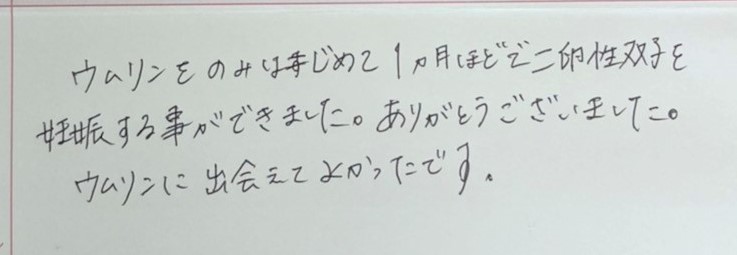 ウムリンをのみはじめて1ヵ月ほどで二卵性双子を
妊娠する事ができました。ありがとうございました。
ウムリンに出会えてよかったです。